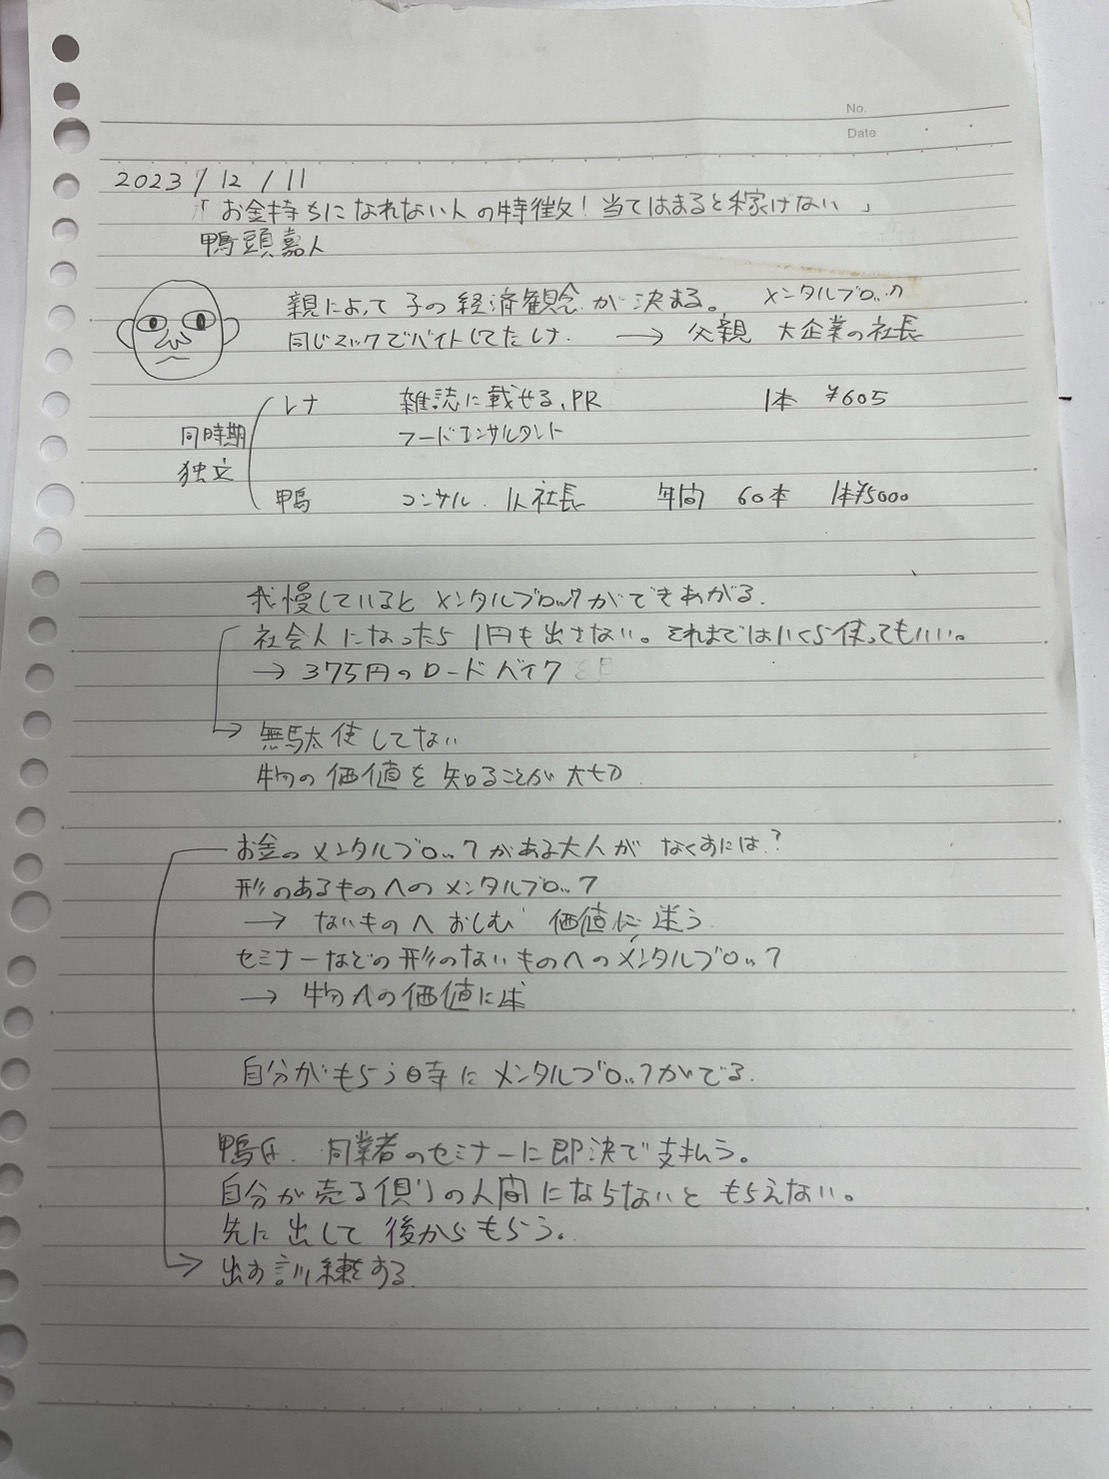 No.
Date
2023/12/11
「お金持ちになれない人の特徴!当てはまると稼げない」
鴨頭嘉人
親によって子の経済観念が決まる。 メンタルブロック
同じマックでバイトしてたレナ. → 父親 大企業の社長
同時期
独立
レナ 雑誌に載せる、PR 1本 ¥605
フードコンサルタント
鴨 コンサル. 1人社長 年間 60本 1本¥5000
我慢しているとメンタルブロックができあがる.
社会人になったら1円も出さない。それまではいくら使ってもいい。
→ 375円のロードバイク
→ 無駄使してない
物の価値を知ることが大切
お金のメンタルブロックがある大人が なくすには?
形のあるものへのメンタルブロック
→ ないものへおしむ 価値に迷う
セミナーなどの形のないものへのメンタルブロック
→ 物への価値に迷
自分がもらう時にメンタルブロックがでる.
鴨氏. 同業者のセミナーに即決で支払う。
自分が売る側の人間にならないともらえない。
先に出して後からもらう。
→ 出す訓練をする.